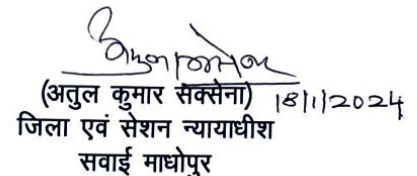 (अतुल कुमार सक्सेना) 18/1/2024
जिला एवं सेशन न्यायाधीश
सवाई माधोपुर